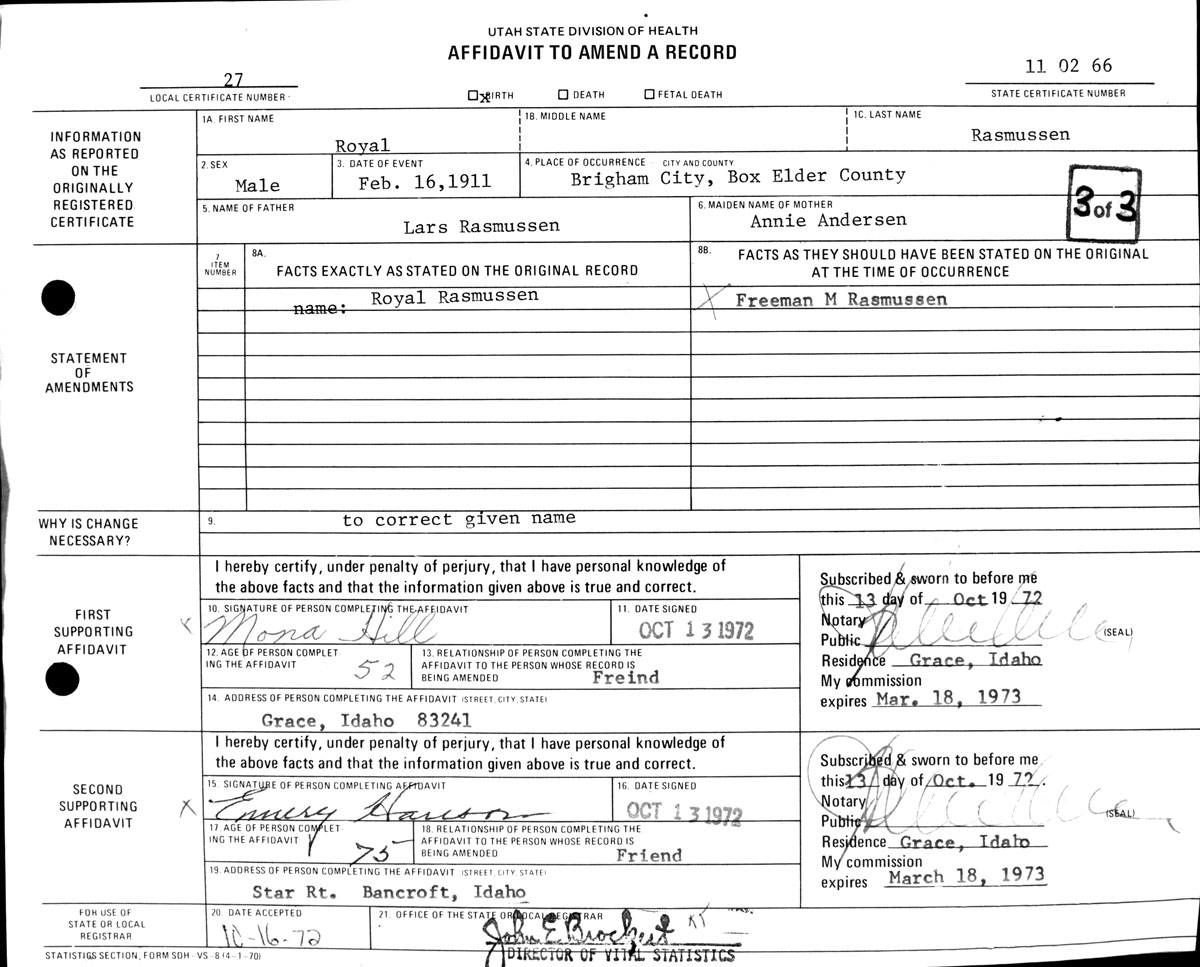 UTAH STATE DIVISION OF HEALTH
AFFIDAVIT TO AMEND A RECORD
27
LOCAL CERTIFICATE NUMBER
X BIRTH DEATH FETAL DEATH
11 02 66
STATE CERTIFICATE NUMBER
INFORMATION AS REPORTED ON THE ORIGINALLY REGISTERED CERTIFICATE
1A. FIRST NAME
Royal
1B. MIDDLE NAME
1C. LAST NAME
Rasmussen
2. SEX
Male
3. DATE OF EVENT
Feb. 16,1911
4. PLACE OF OCCURRENCE - CITY AND COUNTY
Brigham City, Box Elder County
5. NAME OF FATHER
Lars Rasmussen
6. MAIDEN NAME OF MOTHER
Annie Andersen
3 of 3
STATEMENT OF AMENDMENTS
7 ITEM NUMBER
8A. FACTS EXACTLY AS STATED ON THE ORIGINAL RECORD
8B. FACTS AS THEY SHOULD HAVE BEEN STATED ON THE ORIGINAL
AT THE TIME OF OCCURRENCE
name: Royal Rasmussen
X Freeman M Rasmussen
WHY IS CHANGE NECESSARY?
9. to correct given name
FIRST SUPPORTING AFFIDAVIT
I hereby certify, under penalty of perjury, that I have personal knowledge of
the above facts and that the information given above is true and correct.
10. SIGNATURE OF PERSON COMPLETING THE AFFIDAVIT
X Mona Hill
11. DATE SIGNED
OCT 13 1972
12. AGE OF PERSON COMPLETING THE AFFIDAVIT
52
13. RELATIONSHIP OF PERSON COMPLETING THE
AFFIDAVIT TO THE PERSON WHOSE RECORD IS
BEING AMENDED Freind
14. ADDRESS OF PERSON COMPLETING THE AFFIDAVIT (STREET, CITY, STATE)
Grace, Idaho 83241
Subscribed & sworn to before me
this 13 day of Oct 19 72
Notary
Public (SEAL)
Residence Grace, Idaho
My commission
expires Mar. 18, 1973
SECOND SUPPORTING AFFIDAVIT
I hereby certify, under penalty of perjury, that I have personal knowledge of
the above facts and that the information given above is true and correct.
15. SIGNATURE OF PERSON COMPLETING AFFIDAVIT
X Emery
16. DATE SIGNED
OCT 13 1972
17. AGE OF PERSON COMPLETING THE AFFIDAVIT
75
18. RELATIONSHIP OF PERSON COMPLETING THE
AFFIDAVIT TO THE PERSON WHOSE RECORD IS
BEING AMENDED Friend
19. ADDRESS OF PERSON COMPLETING THE AFFIDAVIT (STREET, CITY, STATE)
Star Rt. Bancroft, Idaho
Subscribed & sworn to before me
this 13 day of Oct. 19 72.
Notary
Public (SEAL)
Residence Grace, Idaho
My commission
expires March 18, 1973
FOR USE OF STATE OR LOCAL REGISTRAR
20. DATE ACCEPTED
10-16-72
21. OFFICE OF THE STATE OR LOCAL REGISTRAR
John E Brockert
DIRECTOR OF VITAL STATISTICS
STATISTICS SECTION, FORM SDH-VS-8 (4-1-70)